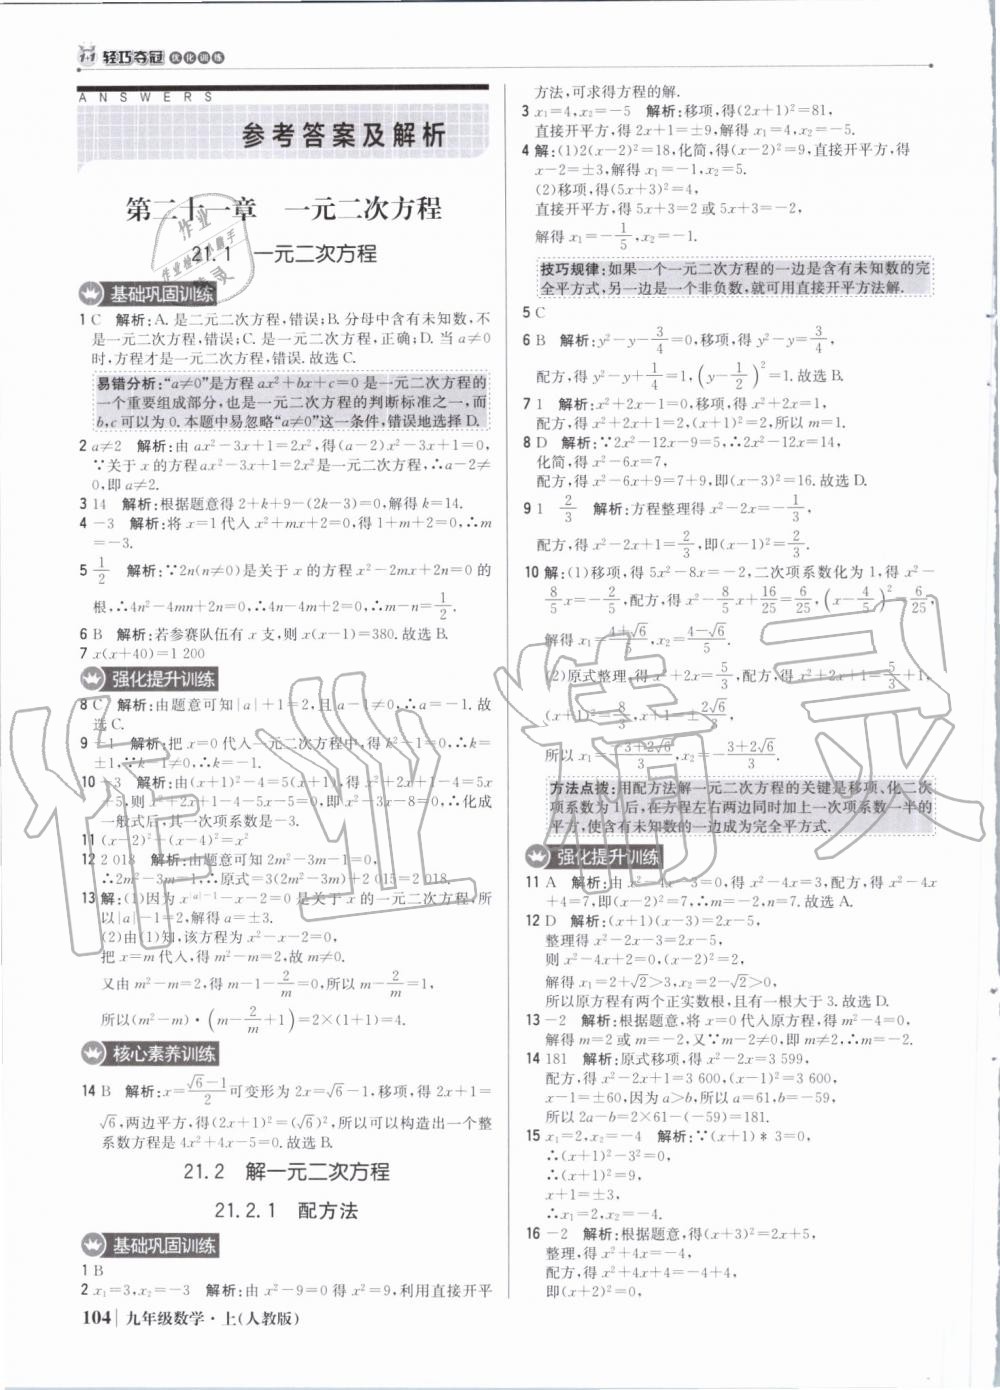 1+1 轻巧夺冠 优化训练
ANSWERS
参考答案及解析
第二十一章 一元二次方程
21.1 一元二次方程
基础巩固训练
1 C 解析:A.是二元二次方程,错误;B.分母中含有未知数,不
是一元二次方程,错误;C.是一元二次方程,正确;D.当 a≠0
时,方程才是一元二次方程,错误.故选 C.
易错分析:“a≠0”是方程 ax²+bx+c=0 是一元二次方程的
一个重要组成部分,也是一元二次方程的判断标准之一,而
b,c 可以为 0.本题中易忽略“a≠0”这一条件,错误地选择 D.
2 a≠2 解析:由 ax²-3x+1=2x²,得(a-2)x²-3x+1=0,
∵关于 x 的方程ax²-3x+1=2x²是一元二次方程,∴a-2≠
0,即 a≠2.
3 14 解析:根据题意得 2+k+9-(2k-3)=0,解得 k=14.
4 -3 解析:将 x=1 代入 x²+mx+2=0,得 1+m+2=0,∴m
=-3.
5 1/2 解析:∵2n(n≠0)是关于 x 的方程 x²-2mx+2n=0 的
根,∴4n²-4mn+2n=0,∴4n-4m+2=0,∴m-n=1/2.
6 B 解析:若参赛队伍有 x 支,则 x(x-1)=380.故选 B.
7 x(x+40)=1 200
强化提升训练
8 C 解析:由题意可知|a|+1=2,且 a-1≠0,∴a=-1.故
选 C.
9 -1 解析:把 x=0 代入一元二次方程中,得 k²-1=0,∴k=
±1,∵k-1≠0,∴k=-1.
10 -3 解析:由(x+1)²-4=5(x+1),得 x²+2x+1-4=5x
+5,则 x²+2x+1-4-5x-5=0,即 x²-3x-8=0,∴化成
一般式后,其一次项系数是-3.
11 (x-2)²+(x-4)²=x²
12 2 018 解析:由题意可知 2m²-3m-1=0,
∴2m²-3m=1,∴原式=3(2m²-3m)+2 015=2 018.
13 解:(1)因为 x^|a|-1-x-2=0 是关于 x 的一元二次方程,所
以|a|-1=2,解得 a=±3.
(2)由(1)知,该方程为 x²-x-2=0,
把 x=m 代入,得 m²-m=2,故 m≠0.
又由 m²-m=2,得 m-1-2/m=0,所以 m-2/m=1,
所以(m²-m)·(m-2/m+1)=2×(1+1)=4.
核心素养训练
14 B 解析:x=(√6-1)/2 可变形为 2x=√6-1,移项,得 2x+1=
√6,两边平方,得(2x+1)²=(√6)²,所以可以构造出一个整
系数方程是 4x²+4x-5=0.故选 B.
21.2 解一元二次方程
21.2.1 配方法
基础巩固训练
1 B
2 x₁=3,x₂=-3 解析:由 x²-9=0 得 x²=9,利用直接开平
104 九年级数学·上(人教版)
方法,可求得方程的解.
3 x₁=4,x₂=-5 解析:移项,得(2x+1)²=81,
直接开平方,得 2x+1=±9,解得 x₁=4,x₂=-5.
4 解:(1)2(x-2)²=18,化简,得(x-2)²=9,直接开平方,得
x-2=±3,解得 x₁=-1,x₂=5.
(2)移项,得(5x+3)²=4,
直接开平方,得 5x+3=2 或 5x+3=-2,
解得 x₁=-1/5,x₂=-1.
技巧规律:如果一个一元二次方程的一边是含有未知数的完
全平方式,另一边是一个非负数,就可用直接开平方法解.
5 C
6 B 解析:y²-y-3/4=0,移项,得 y²-y=3/4,
配方,得 y²-y+1/4=1,(y-1/2)²=1.故选 B.
7 1 解析:x²+2x-1=0,移项,得 x²+2x=1,
配方,得 x²+2x+1=2,(x+1)²=2,所以 m=1.
8 D 解析:∵2x²-12x-9=5,∴2x²-12x=14,
化简,得 x²-6x=7,
配方,得 x²-6x+9=7+9,即(x-3)²=16.故选 D.
9 1 2/3 解析:方程整理得 x²-2x=-1/3,
配方,得 x²-2x+1=2/3,即(x-1)²=2/3.
10 解:(1)移项,得 5x²-8x=-2,二次项系数化为 1,得 x²-
8/5x=-2/5,配方,得 x²-8/5x+16/25=6/25,(x-4/5)²=6/25,
解得 x₁=(4+√6)/5,x₂=(4-√6)/5.
(2)原式整理,得 x²+2x=5/3,配方,得 x²+2x+1=5/3+1,
(x+1)²=8/3,x+1=±2√6/3,
所以 x₁=(-3+2√6)/3,x₂=-(3+2√6)/3.
方法点拨:用配方法解一元二次方程的关键是移项,化二次
项系数为 1 后,在方程左右两边同时加上一次项系数一半的
平方,使含有未知数的一边成为完全平方式.
强化提升训练
11 A 解析:由 x²-4x-3=0,得 x²-4x=3,配方,得 x²-4x
+4=7,即(x-2)²=7,∴m=-2,n=7.故选 A.
12 D 解析:(x+1)(x-3)=2x-5,
整理得 x²-2x-3=2x-5,
则 x²-4x+2=0,(x-2)²=2,
解得 x₁=2+√2>3,x₂=2-√2>0,
所以原方程有两个正实数根,且有一根大于 3.故选 D.
13 -2 解析:根据题意,将 x=0 代入原方程,得 m²-4=0,
解得 m=2 或 m=-2,又∵m-2≠0,即 m≠2,∴m=-2.
14 181 解析:原式移项,得 x²-2x=3 599,
配方,得 x²-2x+1=3 600,(x-1)²=3 600,
x-1=±60,因为 a>b,所以 a=61,b=-59,
所以 2a-b=2×61-(-59)=181.
15 x₁=2,x₂=-4 解析:∵(x+1)*3=0,
∴(x+1)²-3²=0,
∴(x+1)²=9,
x+1=±3,
∴x₁=2,x₂=-4.
16 -2 解析:根据题意,得(x+3)²=2x+5,
整理,得 x²+4x=-4,
配方,得 x²+4x+4=-4+4,
即(x+2)²=0,